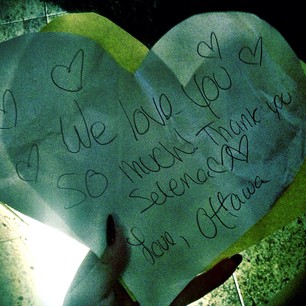 We love you
so much! Thank you
Selena
Love, Ottawa